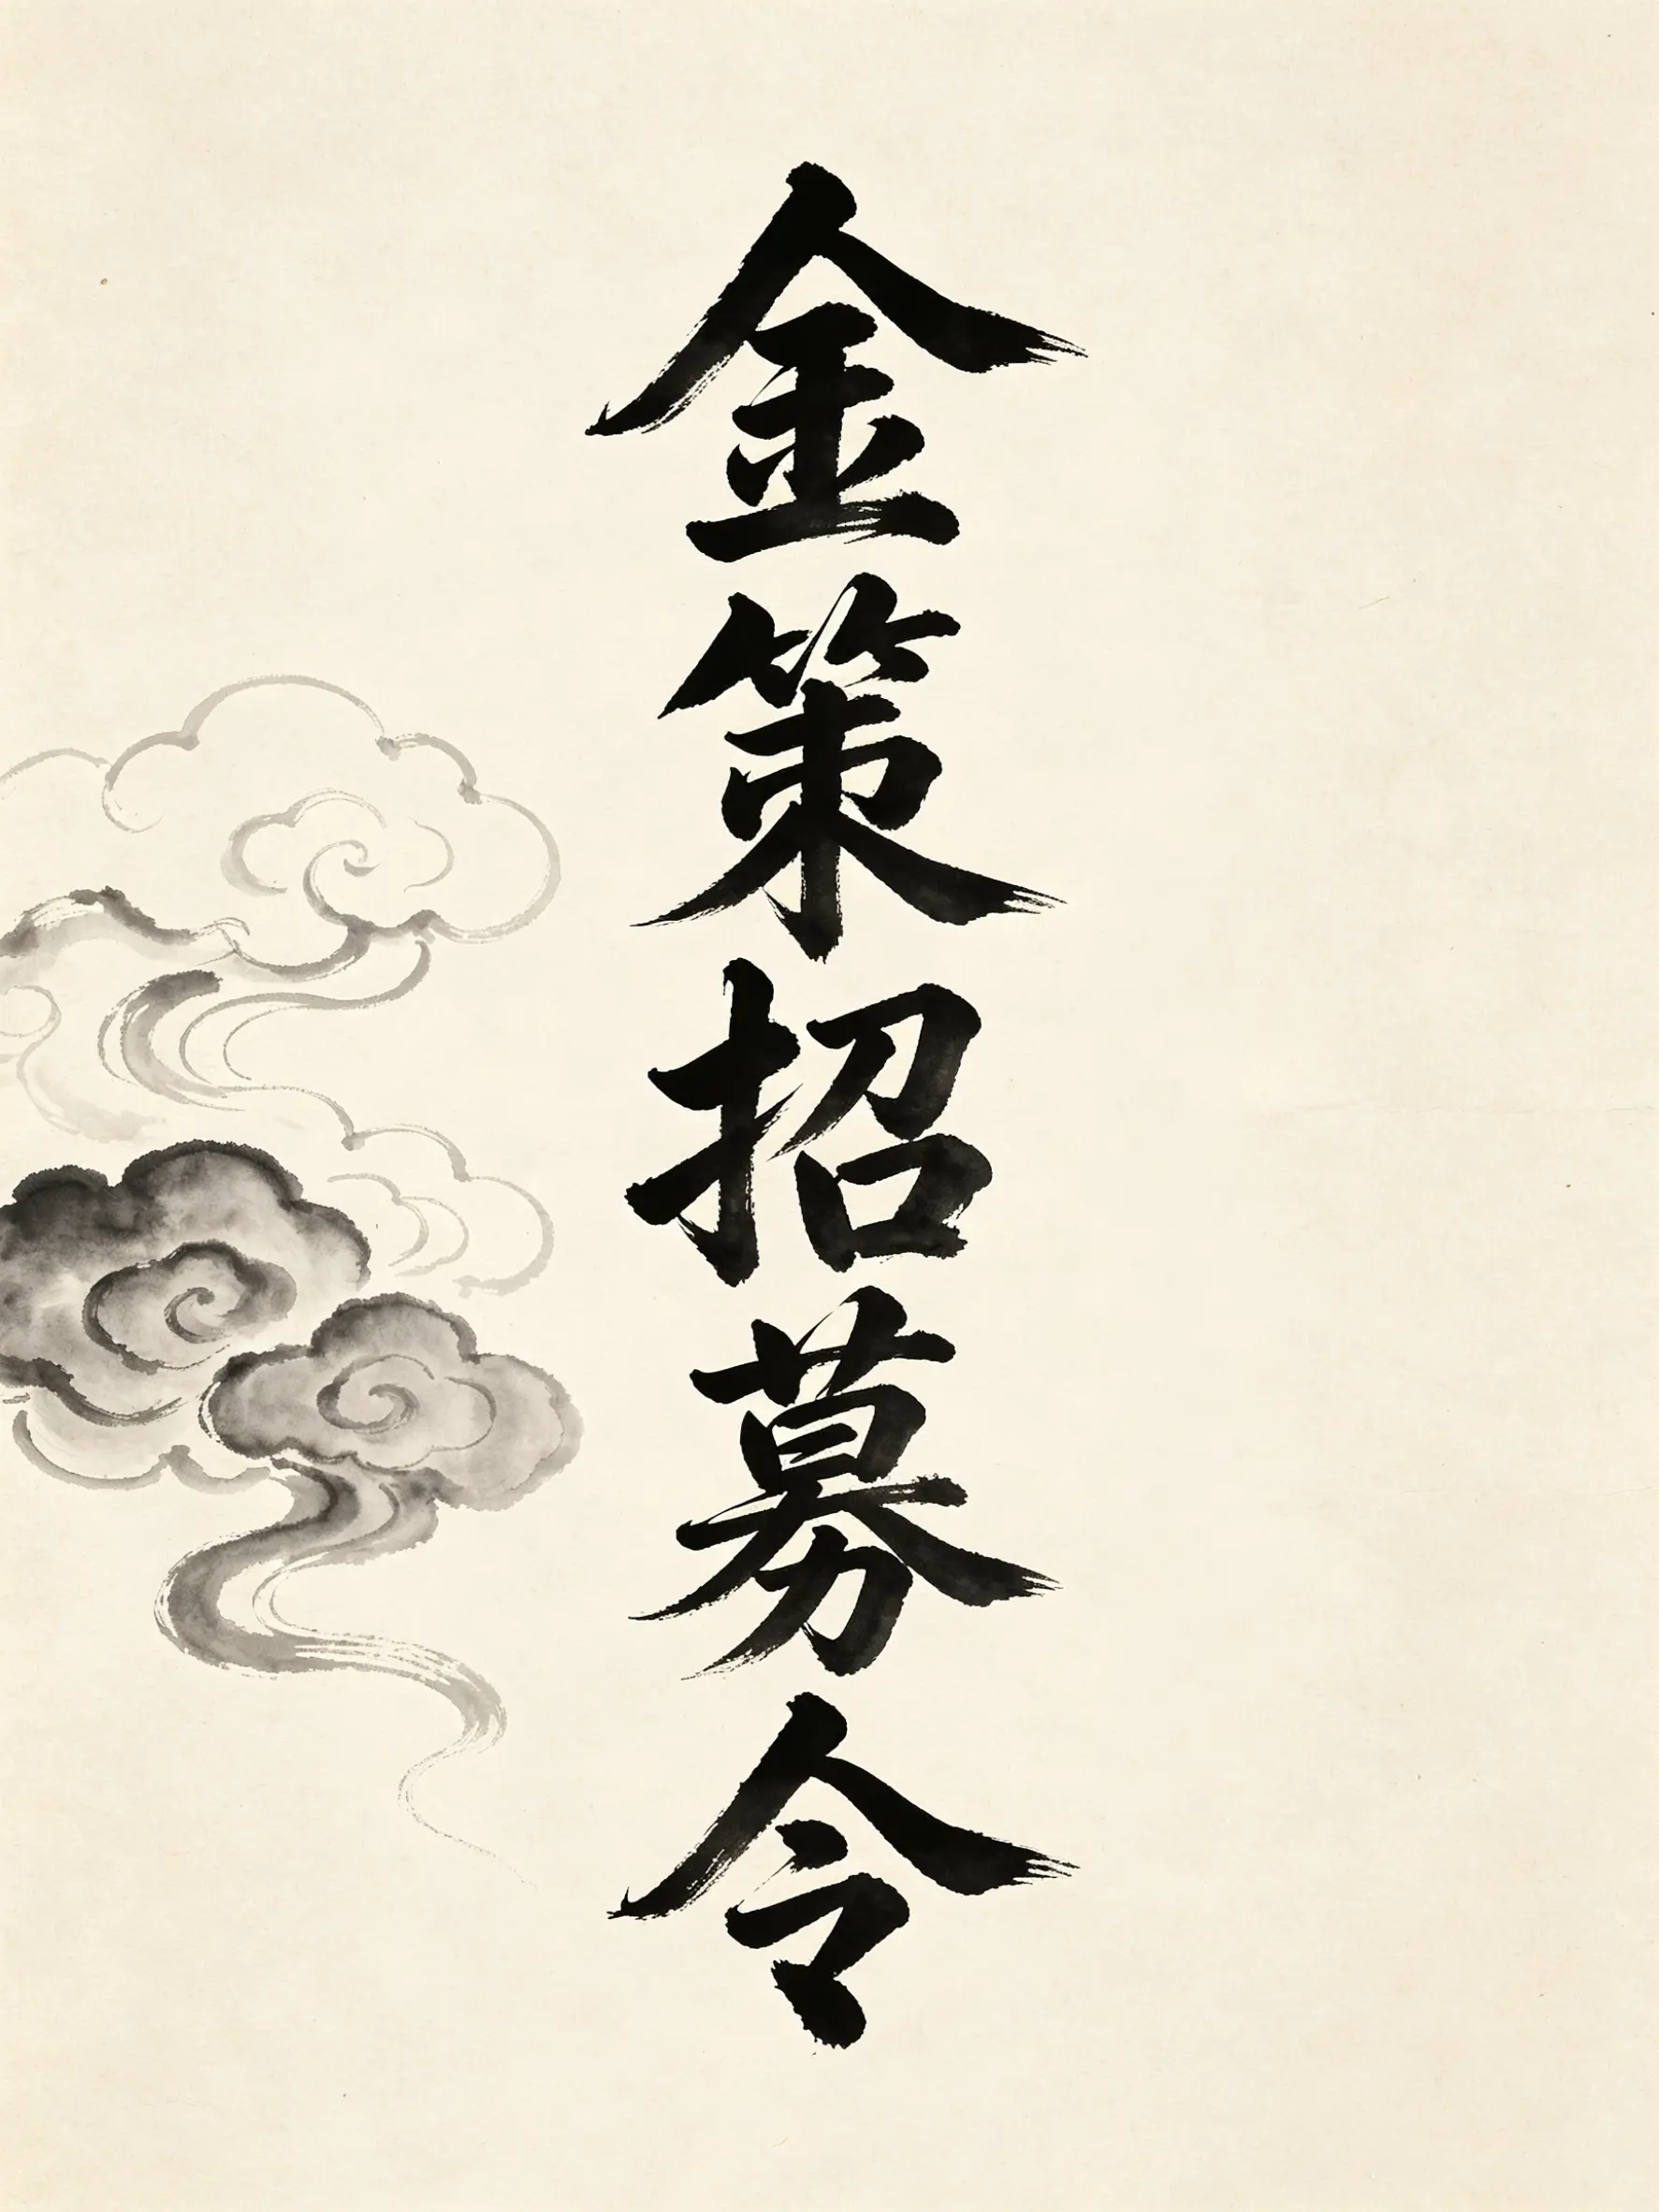 金策招募令